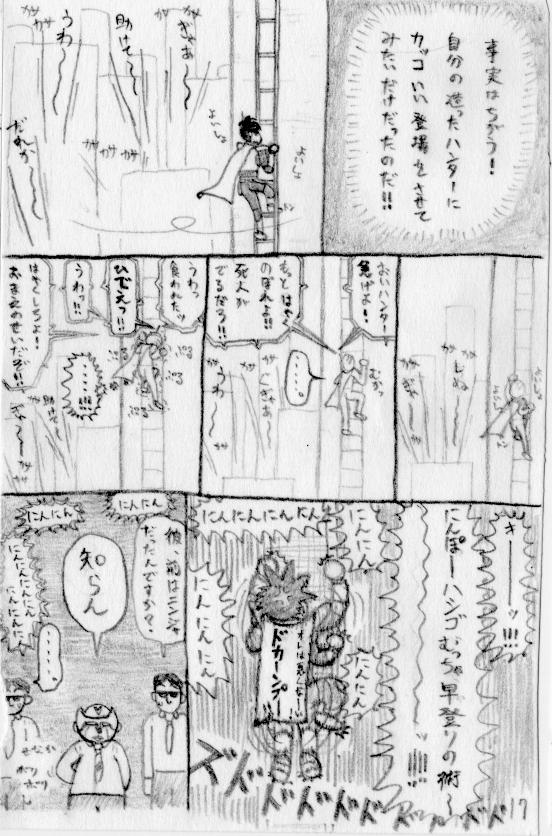 事実はちがう!
自分の造ったハンターに
カッコいい登場をさせて
みたいだけだったのだ!!
よいしょ
よいしょ
ガガ
きゃあ〜〜
助けて〜
ガガガ
うわ〜〜
ガサガサ
だれか〜
ガガ
しぬ〜
ガガ
ぎゃ〜
よいしょ
おいハンター
急げよ!!
もっとはやく
のぼれよ!!
死人が
でるだろ!!
むかっ
‥‥‥。
くきゃあ〜
うわ〜
うわっ
食われたッ
ひでえっ!!
うわっ!!
はやくしろよ!!
おまえのせいだぞ!!
ぷる
ぷる
ぷる
‥‥‥!!!
助けて〜
ぎゃ〜
キーーーッ!!!!
にんぽーハシゴむっちゃ早登りの術〜
!!!!
にんにん
にんにんにんにん
にんにん
にんにん
オレは死んだー
ドカーンプー
ズドドドドドドド
17
にんにん
にんにん
にんにんにん
にんにんにん
彼、前はニンジャ
だったんですか?
知らん
‥‥‥。
せなか
ボリ
ボリ